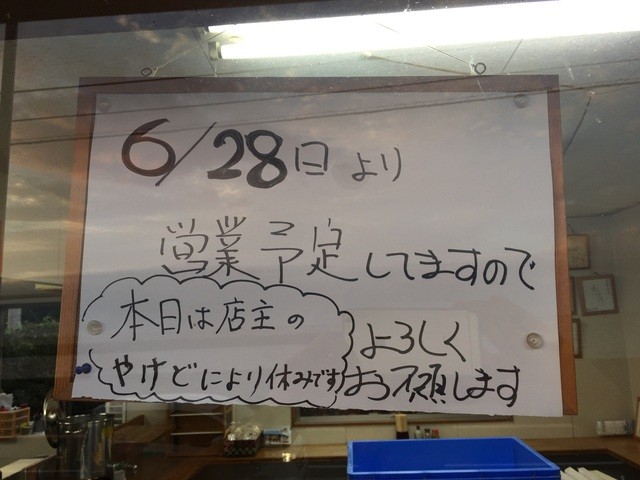 6/28日より
営業予定してますので
よろしく
お願します
本日は店主の
やけどにより休みです